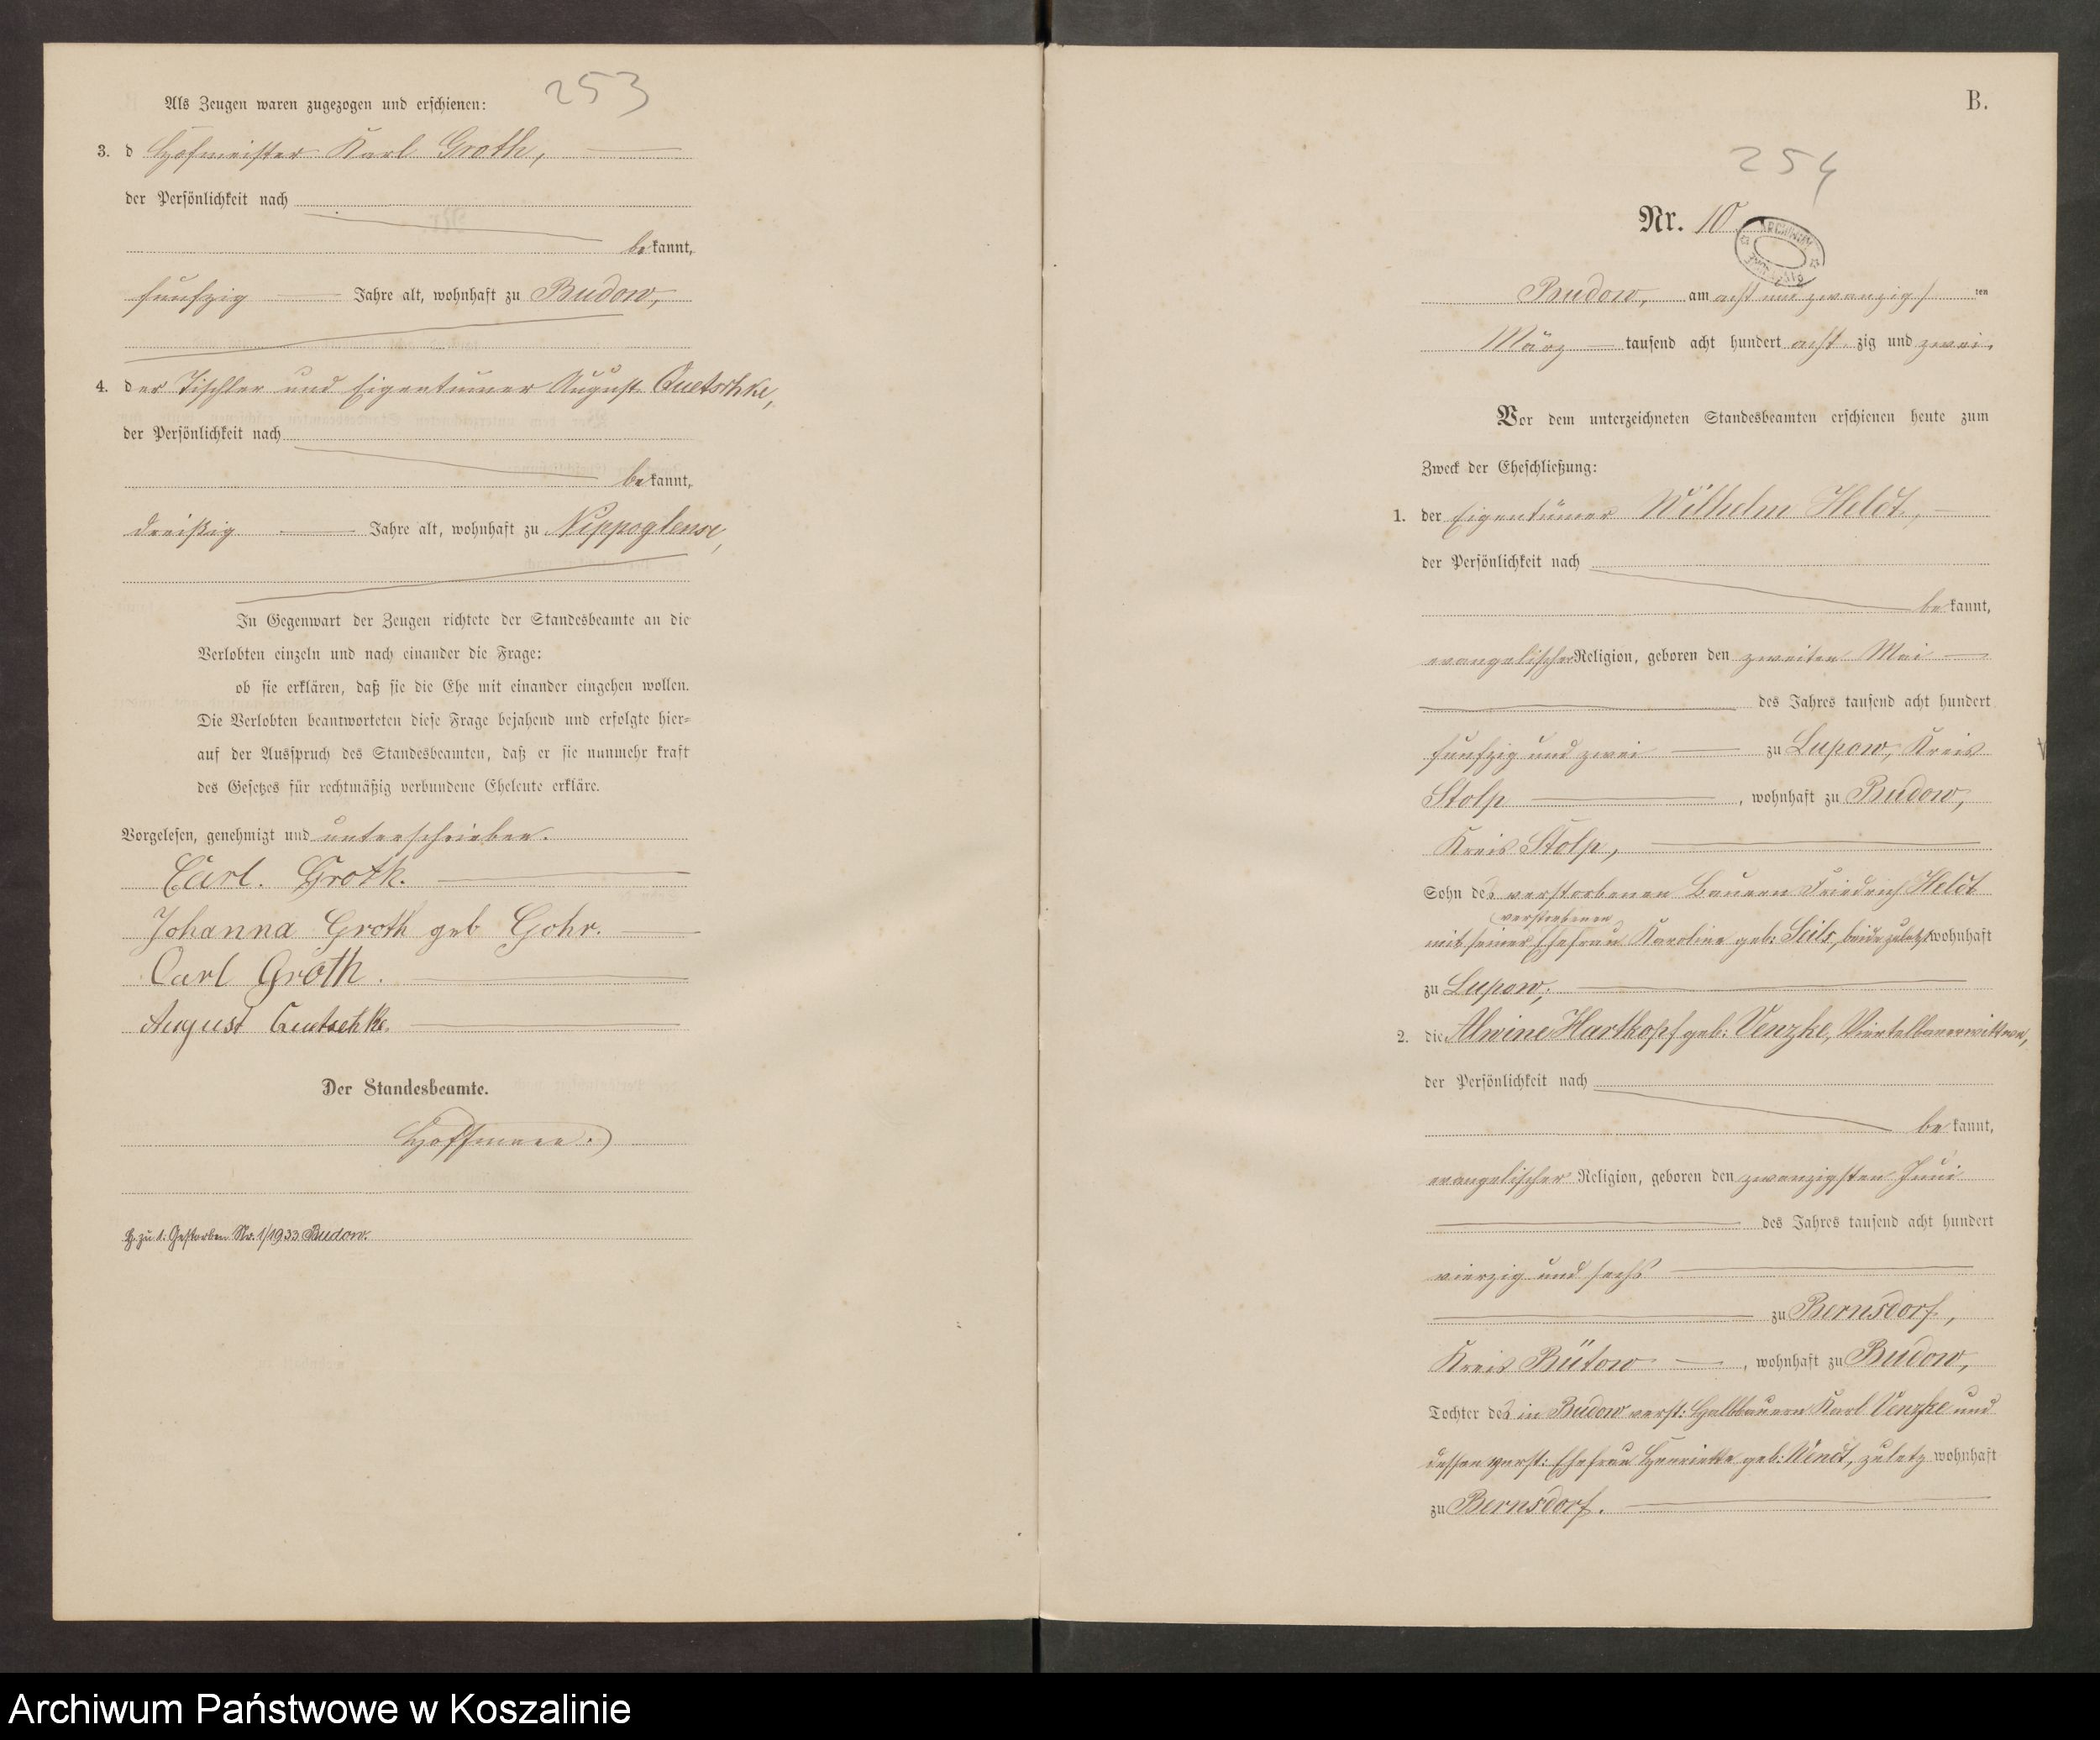 253
Als Zeugen waren zugezogen und erschienen:
3. d Hofmeister Karl Groth,
der Persönlichkeit nach
bekannt,
funfzig Jahre alt, wohnhaft zu Budow,
4. der Tischler und Eigentümer August Quetschke,
der Persönlichkeit nach
bekannt,
dreißig Jahre alt, wohnhaft zu Nippoglense,
In Gegenwart der Zeugen richtete der Standesbeamte an die
Verlobten einzeln und nach einander die Frage:
ob sie erklären, daß sie die Ehe mit einander eingehen wollen.
Die Verlobten beantworteten diese Frage bejahend und erfolgte hier-
auf der Ausspruch des Standesbeamten, daß er sie nunmehr kraft
des Gesetzes für rechtmäßig verbundene Eheleute erkläre.
Vorgelesen, genehmigt und unterschrieben.
Carl. Groth.
Johanna Groth geb Gohr.
Carl Groth.
August Quetschke.
Der Standesbeamte.
Hoffmann.
H. zu 1: Gestorben Nr. 1/1933 Budow.
B.
254
Nr. 10
Budow, am acht und zwanzig ten
März tausend acht hundert acht zig und zwei.
Vor dem unterzeichneten Standesbeamten erschienen heute zum
Zweck der Eheschließung:
1. der Eigentümer Wilhelm Heldt,
der Persönlichkeit nach
bekannt,
evangelischer Religion, geboren den zweiten Mai
des Jahres tausend acht hundert
funfzig und zwei zu Lupow, Kreis
Stolp, wohnhaft zu Budow,
Kreis Stolp,
Sohn des verstorbenen Bauern Friedrich Heldt
verstorbenen
mit seiner Ehefrau Karoline geb: Seils, beide zuletzt wohnhaft
zu Lupow;
2. die Alwine Hartkopf geb: Venzke, Viertelbauerwittwe,
der Persönlichkeit nach
bekannt,
evangelischer Religion, geboren den zwanzigsten Juni
des Jahres tausend acht hundert
vierzig und sechs
zu Bernsdorf,
Kreis Bütow, wohnhaft zu Budow,
Tochter des in Budow verst: Halbbauern Karl Venzke und
dessen verst: Ehefrau Henriette geb: Wendt, zuletz wohnhaft
zu Bernsdorf.
Archiwum Państwowe w Koszalinie